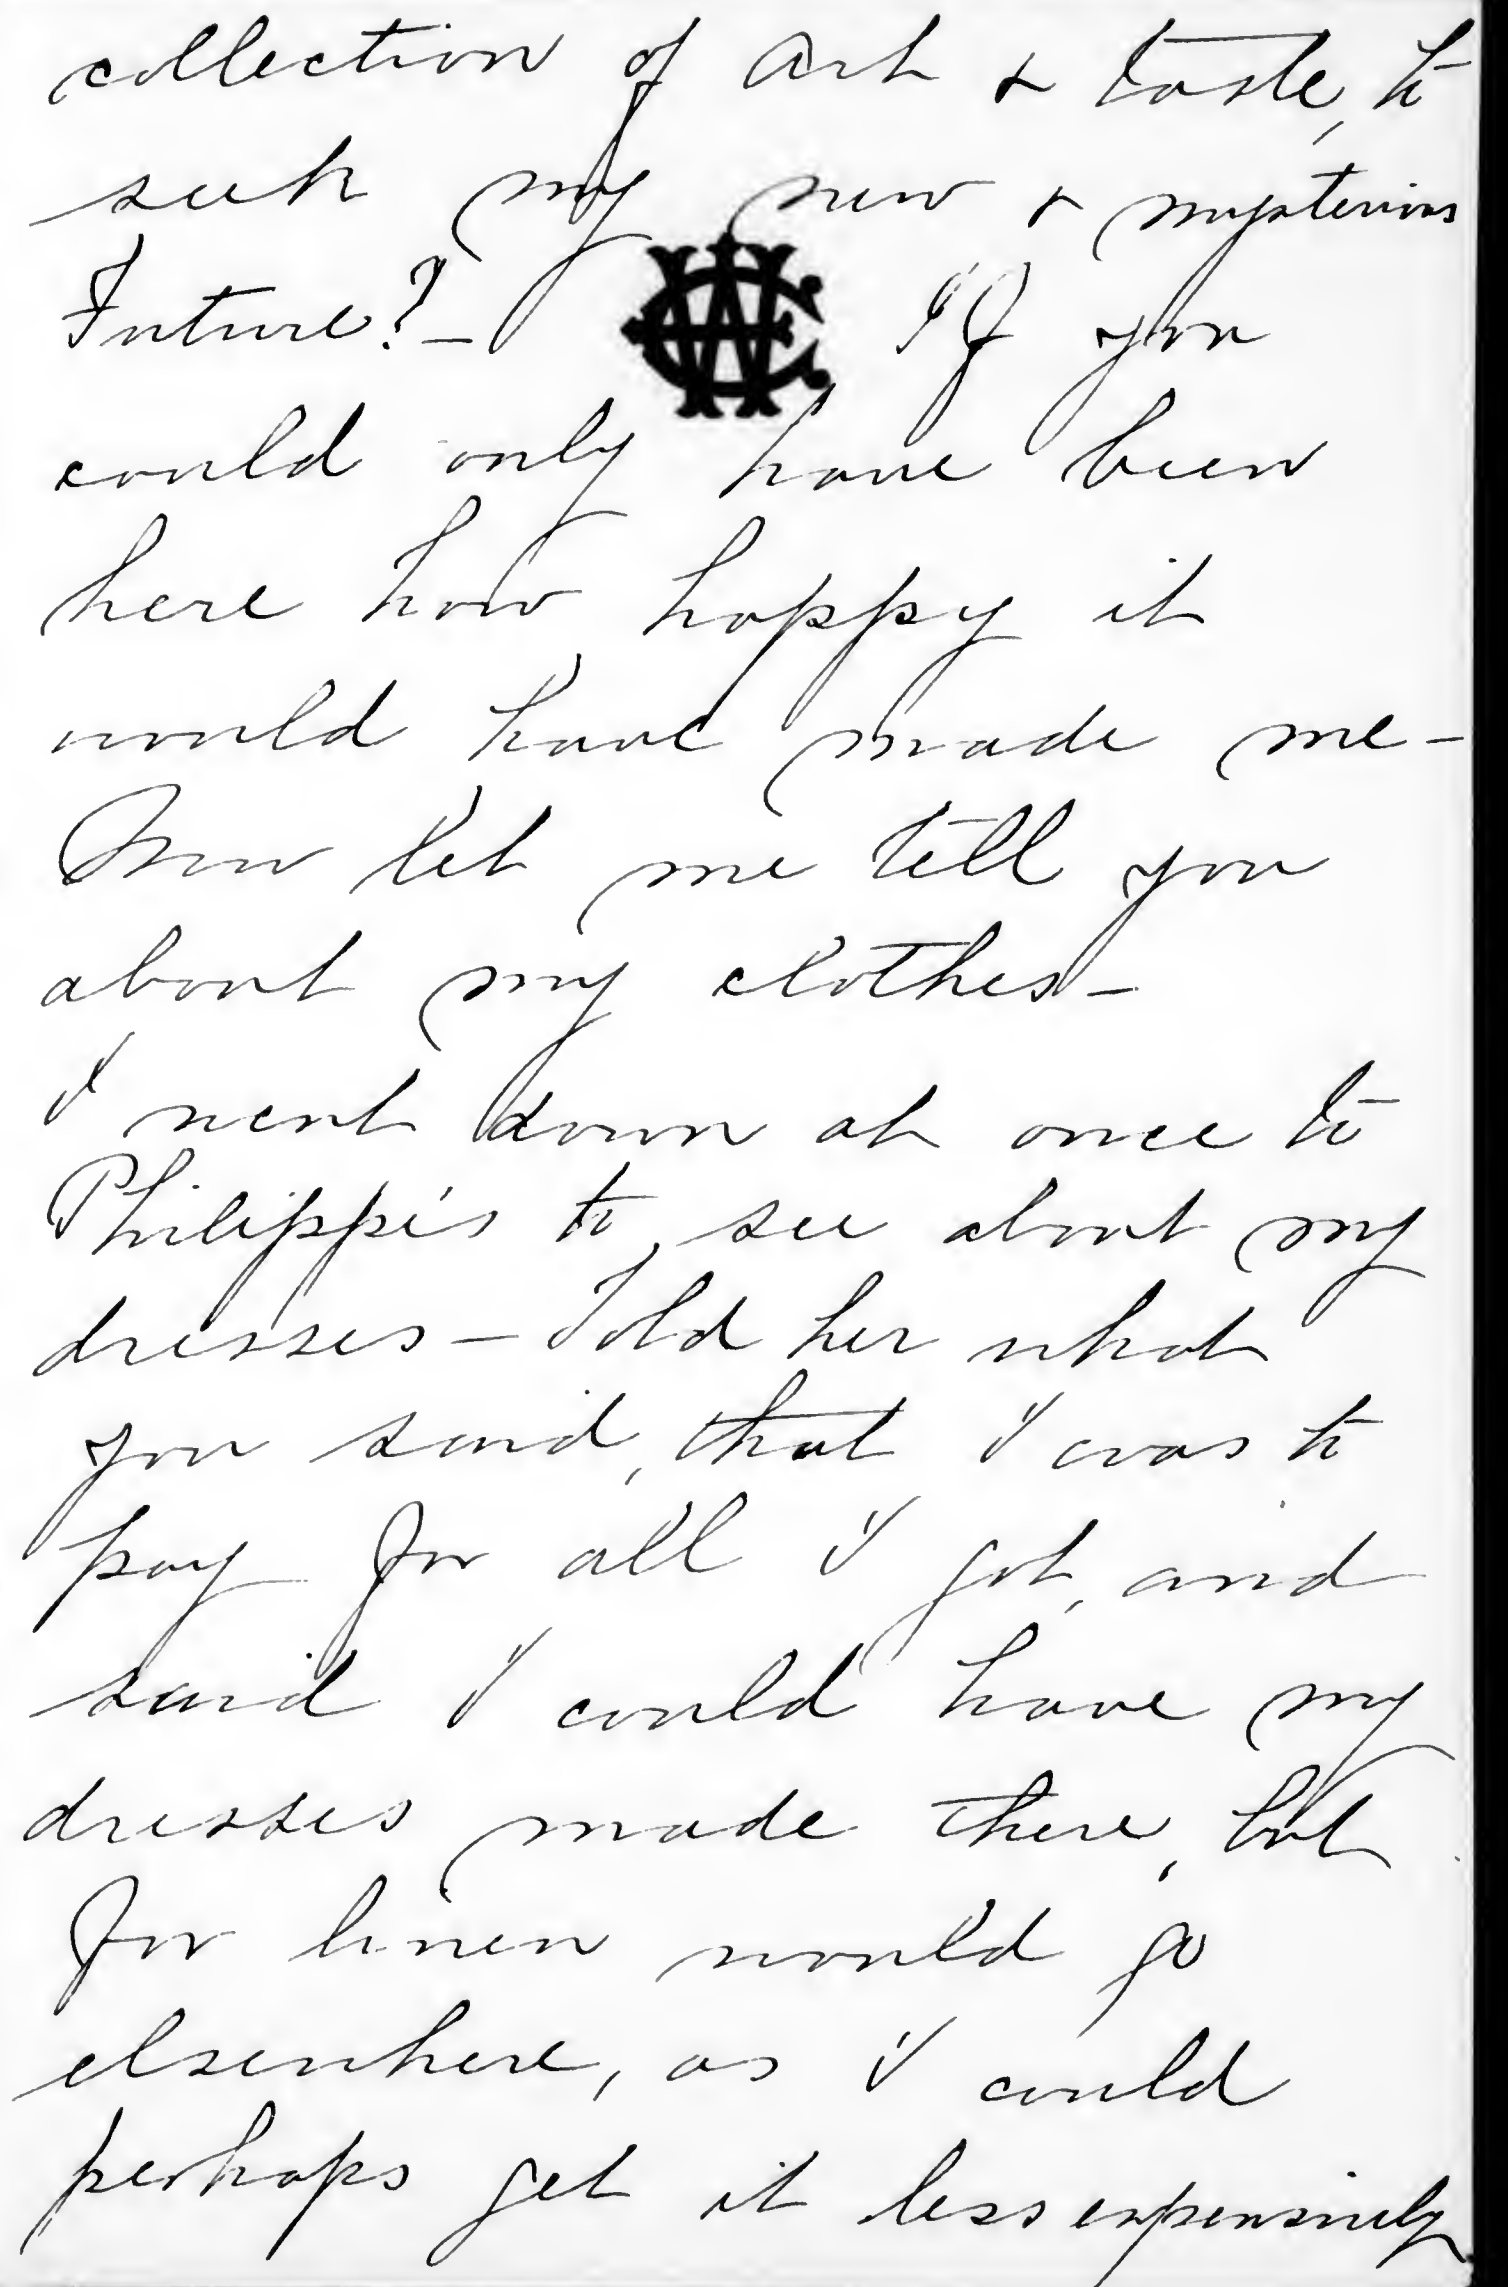 collection of Art & taste, to
seek my new & mysterious
Future?— If you
could only have been
here how happy it
would have made me—
Now let me tell you
about my clothes—
I went down at once to
Philippe's to see about my
dresses— Told her what
you said, that I was to
pay for all I got, and
said I could have my
dresses made there, but
for linen would go
elsewhere, as I could
perhaps get it less expensively